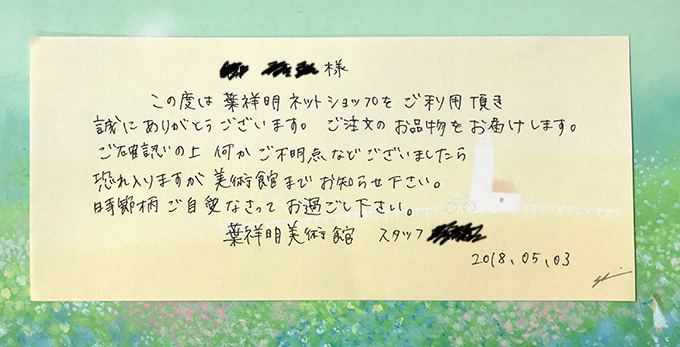 様
この度は 葉祥明 ネットショップを ご利用 頂き
誠に ありがとう ございます。 ご注文の お品物を お届けします。
ご確認の上 何か ご不明点など ございましたら
恐れ入りますが 美術館まで お知らせ 下さい。
時節柄 ご自愛 なさって お過ごし 下さい。
葉祥明美術館 スタッフ
2018.05.03